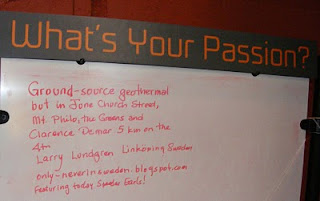 What's Your Passion?
Ground-source geothermal
but in Jone Church Street,
Mt Philo, the Greens and
Clarence Demar 5 km on the
4th
Larry Lundgren Linköping Sweden
only-neverinsweden.blogspot.com
Featuring today Speeder Earls!